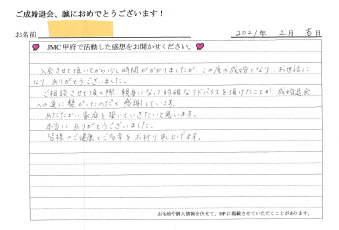 ご成婚退会、誠におめでとうございます！
お名前 2021年 2月 吉日
JMC甲府で活動した感想をお聞かせください。
入会させて頂いてから少し時間がかかりましたが、この度の成婚となり、お世話に
なり ありがとうございました。
ご相談させて頂く際、親身になって的確なアドバイスを頂けたことが、成婚退会
への道に繋がったのだと感謝しています。
あたたかい家庭を築いていきたいと思います。
本当に ありがとうございました。
皆様のご健康とご多幸をお祈り申し上げます。
お名前や個人情報を伏せて、HPに掲載させていただくことがあります。